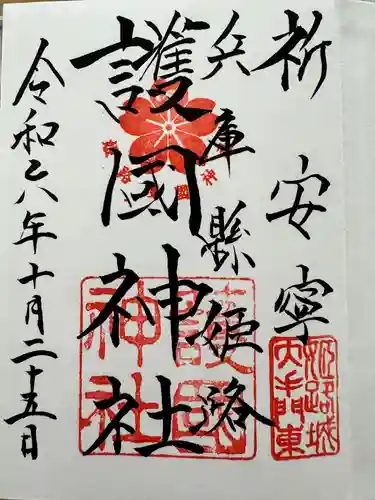 祈安寧
姫路城
大手門東
兵庫縣姫路
護國神社
護國神社
令和六年十月二十五日